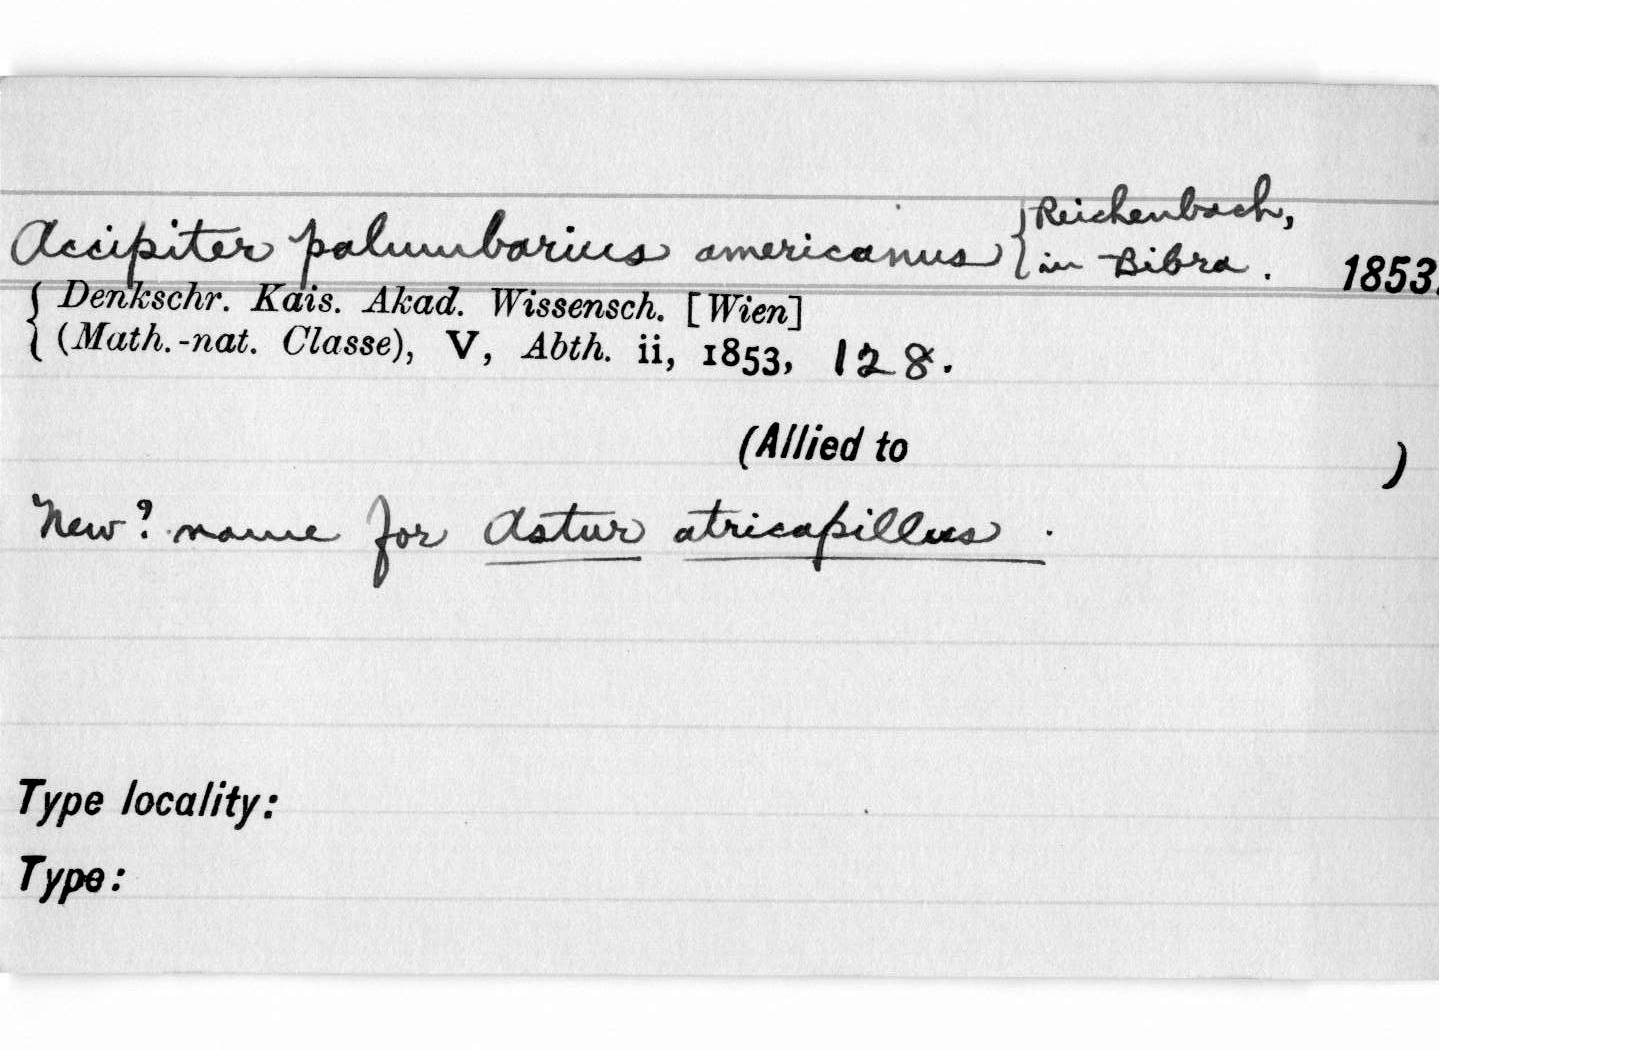 Accipiter palumbarius americanus { Reichenbach,
in Bibra. 1853.
{ Denkschr. Kais. Akad. Wissensch. [Wien]
(Math.-nat. Classe), V, Abth. ii, 1853, 128.
(Allied to )
New? name for Astur atricapillus.
Type locality:
Type: